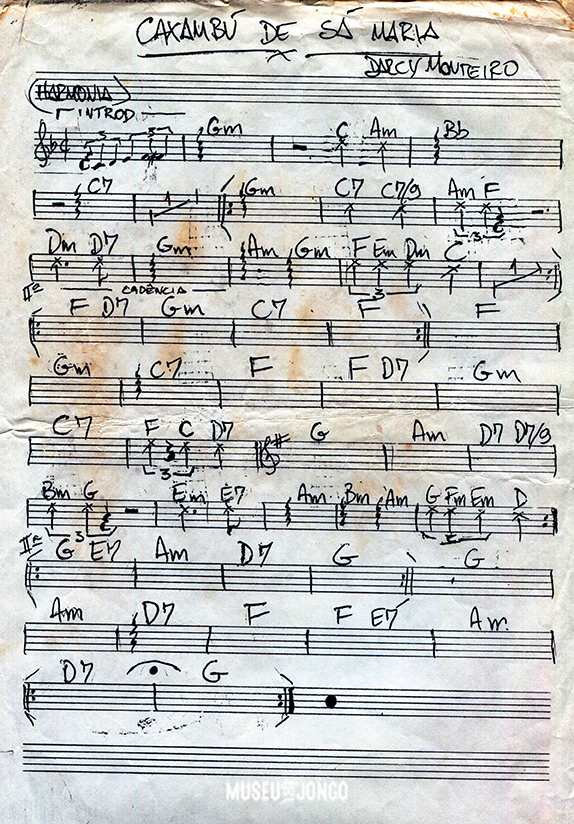 CAXAMBÚ DE SÁ MARIA
DARCY MONTEIRO
HARMONIA
INTROD
3 3 Gm C Am Bb
C7 1 Gm C7 C7/9 Am F
3
Dm D7 Gm Am Gm F Em Dm C 1
3
IIª CADÊNCIA
F D7 Gm C7 F F
Gm C7 F F D7 Gm
C7 F C D7 G Am D7 D7/9
3
Bm G Em E7 Am Bm Am G F#m Em D
3
IIª G E7 Am D7 G G
Am D7 F F E7 Am
D7 G
MUSEU DO JONGO